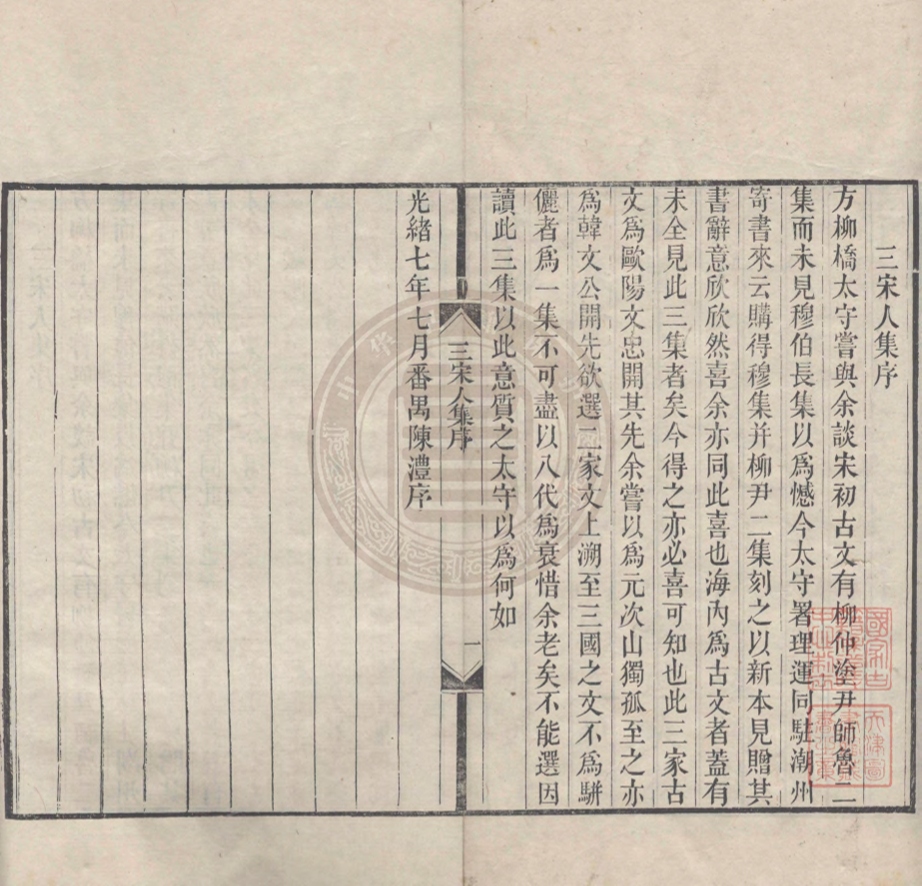 三宋人集序
方柳橋太守嘗與余談宋初古文有柳仲塗尹師魯二
集而未見穆伯長集以爲憾今太守署理運同駐潮州
寄書來云購得穆集并柳尹二集刻之以新本見贈其
書辭意欣欣然喜余亦同此喜也海內爲古文者蓋有
未全見此三集者矣今得之亦必喜可知也此三家古
文爲歐陽文忠開其先余嘗以爲元次山獨孤至之亦
爲韓文公開先欲選二家文上溯至三國之文不爲駢
儷者爲一集不可盡以八代爲衰惜余老矣不能選因
讀此三集以此意質之太守以爲何如
三宋人集序
一
光緒七年七月番禺陳澧序